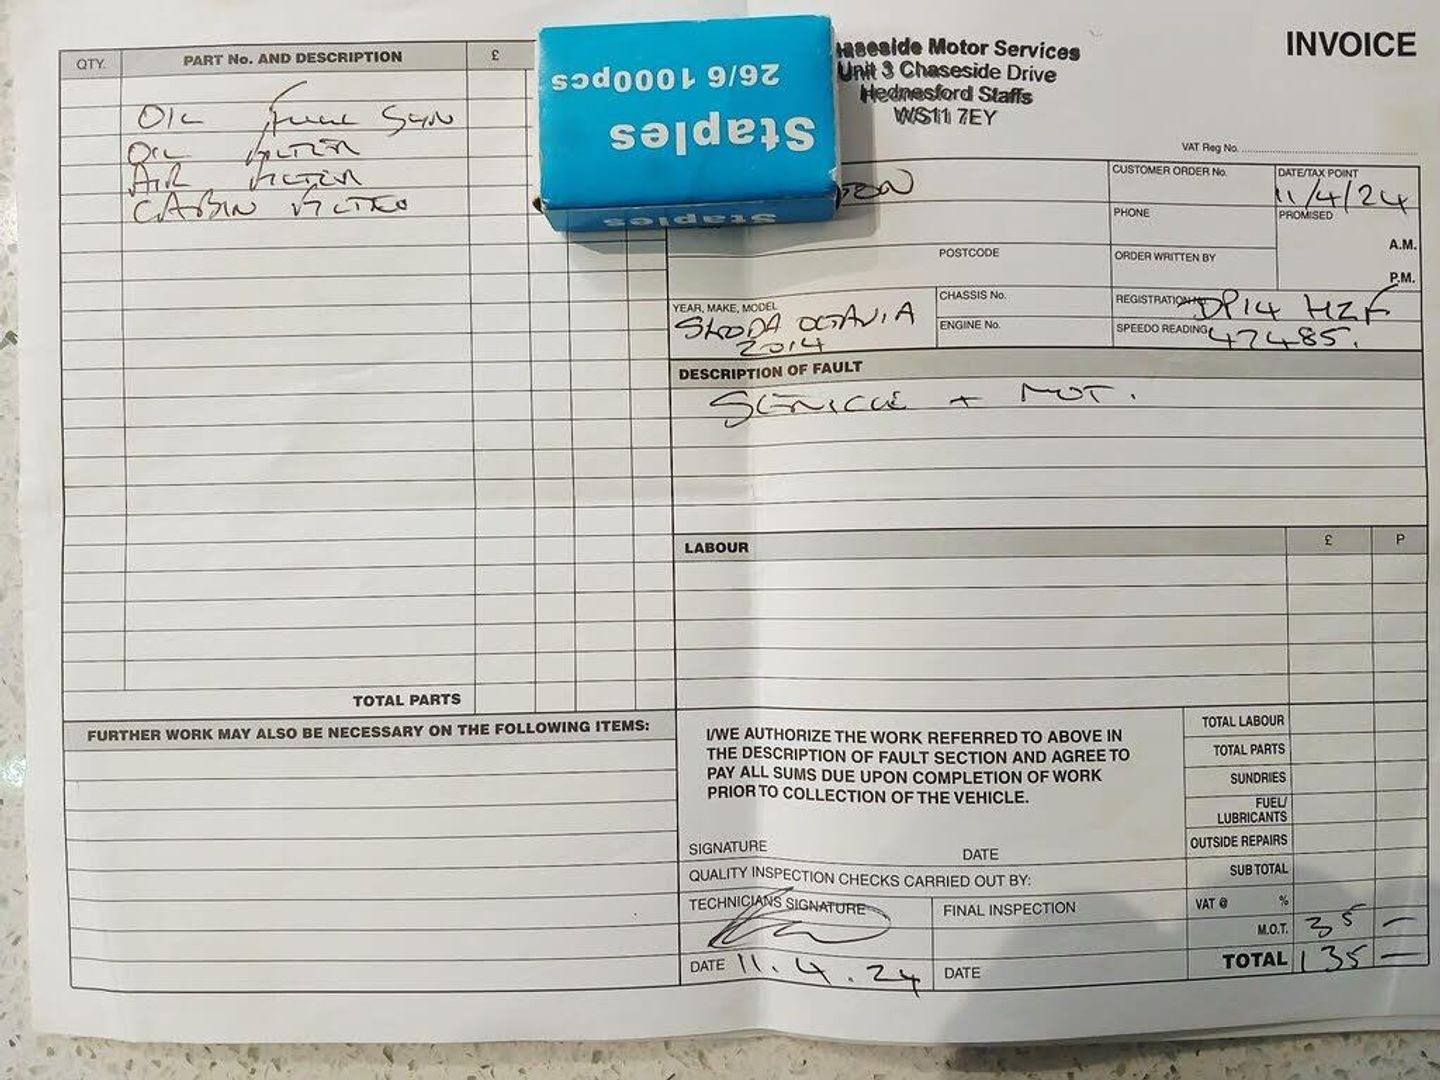 INVOICE
haseside Motor Services
Unit 3 Chaseside Drive
Hednesford Staffs
WS11 7EY
VAT Reg No.
Staples
26/6 1000pcs
Staples
QTY. PART No. AND DESCRIPTION £
OIL FULL SYN
OIL FILTER
AIR FILTER
CABIN FILTER
TOTAL PARTS
FURTHER WORK MAY ALSO BE NECESSARY ON THE FOLLOWING ITEMS:
CUSTOMER ORDER No.
DATE/TAX POINT
11/4/24
PHONE
PROMISED
A.M.
P.M.
POSTCODE
ORDER WRITTEN BY
YEAR, MAKE, MODEL
SKODA OCTAVIA
2014
CHASSIS No.
ENGINE No.
REGISTRATION No. DP14 HZF
SPEEDO READING 47485.
DESCRIPTION OF FAULT
SERVICE + MOT.
LABOUR £ P
I/WE AUTHORIZE THE WORK REFERRED TO ABOVE IN
THE DESCRIPTION OF FAULT SECTION AND AGREE TO
PAY ALL SUMS DUE UPON COMPLETION OF WORK
PRIOR TO COLLECTION OF THE VEHICLE.
SIGNATURE DATE
QUALITY INSPECTION CHECKS CARRIED OUT BY:
TECHNICIANS SIGNATURE
FINAL INSPECTION
DATE 11.4.24
DATE
TOTAL LABOUR
TOTAL PARTS
SUNDRIES
FUEL/
LUBRICANTS
OUTSIDE REPAIRS
SUB TOTAL
VAT @ %
M.O.T. 35 —
TOTAL 135 —